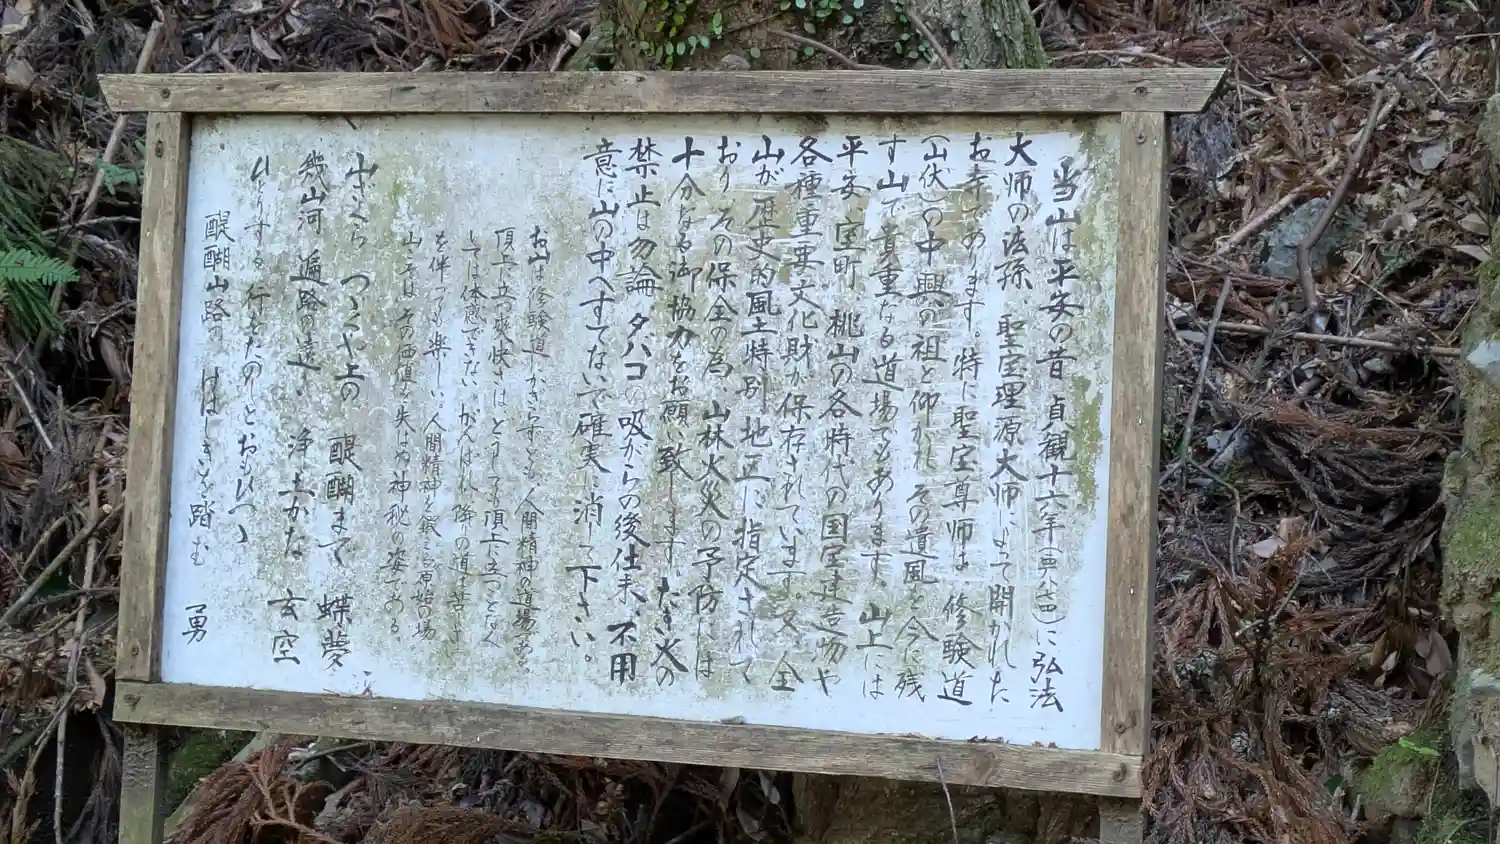 当山は平安の昔貞観十六年(西八七四)に弘法
大師の法孫、聖宝理源大師によって開かれた
お寺であります。特に聖宝尊師は修験道
(山伏)の中興の祖と仰がれ、その道風を今に残
す山で貴重なる道場でもあります。山上には
平安、室町、桃山の各時代の国宝建造物や
各種重要文化財が保存されています。又、全
山が、歴史的風土特別地区に指定されて
おり、その保全の為、山林火災の予防には
十分なる御協力をお願い致します。たき火の
禁止は勿論、タバコの吸がらの後仕末、不用
意に山の中へすてないで確実に消して下さい。
お山は修験道にかぎらずとも、人間精神の道場である。
頂上に立つ爽快さは、どうしても頂上に立つことなく
しては体感できない。がんばれ、降の道は苦しさ
を伴っても楽しい。人間精神を鍛える原始の場
山こそは、その価値を失はぬ神秘の姿である。
山ざくら つづく上の 醍醐まで 蝶夢
幾山河 遍路の道は 浄土かな 玄空
ひとりする 行をたのしとおもひつゝ
醍醐山路の はしきを踏む 勇